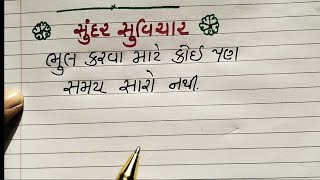 સુંદર સુવિચાર
ભુલ કરવા માટે કોઈ પણ
સમય સારો નથી.